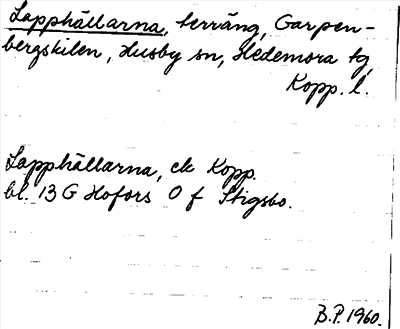 Lapphällarna, terräng, Garpen-
bergskilen, Husby sn, Hedemora tg,
Kopp. l.
Lapphällarna, ek Kopp.
bl. 13 G Hofors O f Stigsbo.
B.P. 1960.